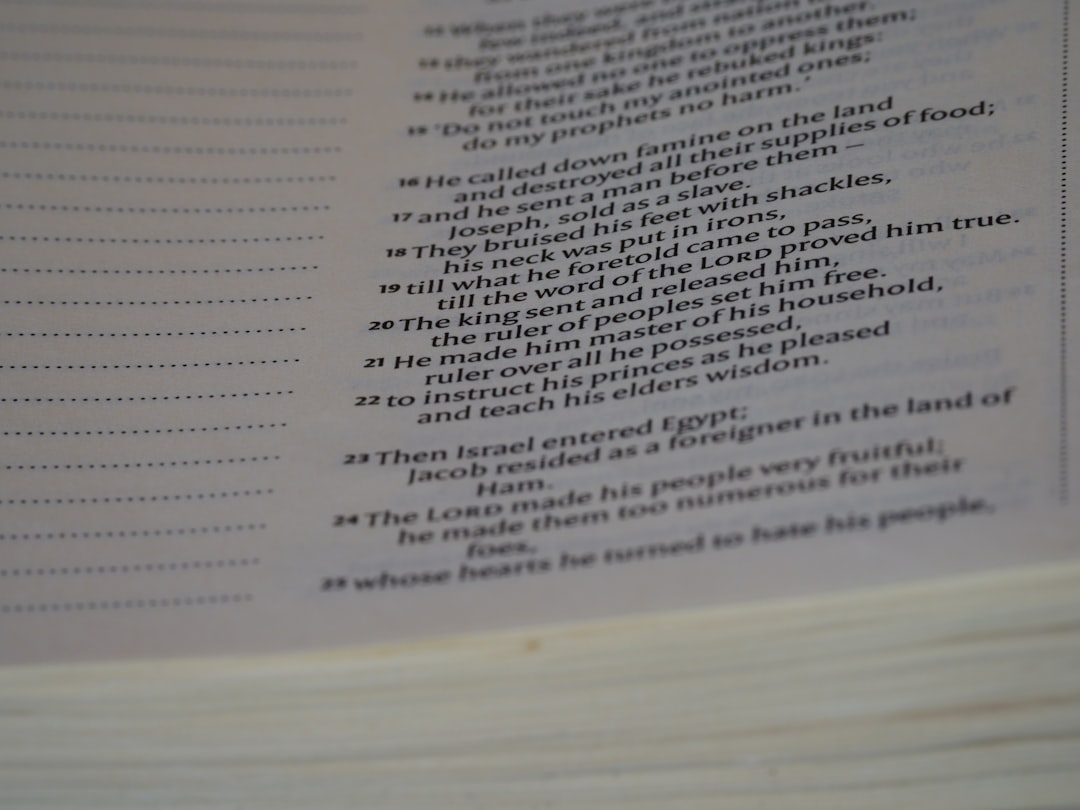 few indeed, and
13 they wandered from nation
from one kingdom to another.
14 He allowed no one to oppress them;
for their sake he rebuked kings:
15 ‘Do not touch my anointed ones;
do my prophets no harm.’
16 He called down famine on the land
and destroyed all their supplies of food;
17 and he sent a man before them –
Joseph, sold as a slave.
18 They bruised his feet with shackles,
his neck was put in irons,
19 till what he foretold came to pass,
till the word of the LORD proved him true.
20 The king sent and released him,
the ruler of peoples set him free.
21 He made him master of his household,
ruler over all he possessed,
22 to instruct his princes as he pleased
and teach his elders wisdom.
23 Then Israel entered Egypt;
Jacob resided as a foreigner in the land of
Ham.
24 The LORD made his people very fruitful;
he made them too numerous for their
foes,
25 whose hearts he turned to hate his people,